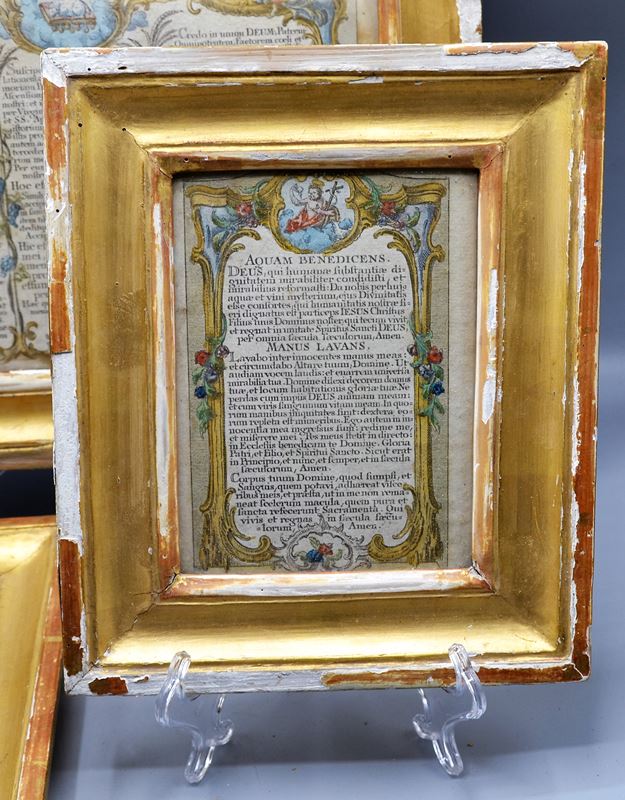 Credo in unum DEUM, Patrem
Omnipotentem, factorem cœli et
AQUAM BENEDICENS.
DEUS, qui humanæ ſubſtantiæ di-
gnitatem mirabiliter condidiſti, et
mirabilius reformaſti: Da nobis per hujus
aquæ et vini myſterium, ejus Divinitatis
eſſe conſortes, qui humanitatis noſtræ fi-
eri dignatus eſt particeps IESUS Chriſtus
Filius tuus Dominus noſter, qui tecum vivit
et regnat in unitate Spiritus Sancti DEUS,
per omnia ſæcula ſæculorum, Amen.
MANUS LAVANS.
Lavabo inter innocentes manus meas:
et circumdabo Altare tuum, Domine. Ut
audiam vocem laudis: et enarrem univerſa
mirabilia tua. Domine dilexi decorem domus
tuæ, et locum habitationis gloriæ tuæ. Ne
perdas cum impiis DEUS animam meam:
et cum viris ſanguinum vitam meam. In quo-
rum manibus iniquitates ſunt: dextera eo-
rum repleta eſt muneribus. Ego autem in in-
nocentia mea ingreſſus ſum: redime me,
et miſerere mei. Pes meus ſtetit in directo:
in Eccleſiis benedicam te Domine. Gloria
Patri, et Filio, et Spiritui Sancto. Sicut erat
in Principio, et nunc, et ſemper, et in ſæcula
ſæculorum, Amen.
Corpus tuum Domine, quod ſumpſi, et
Sanguis, quem potavi, adhæreat viſce-
ribus meis, et præſta, ut in me non rema-
neat ſcelerum macula, quem pura et
ſancta refecerunt Sacramenta. Qui
vivis et regnas in ſæcula ſæcu-
lorum, Amen.